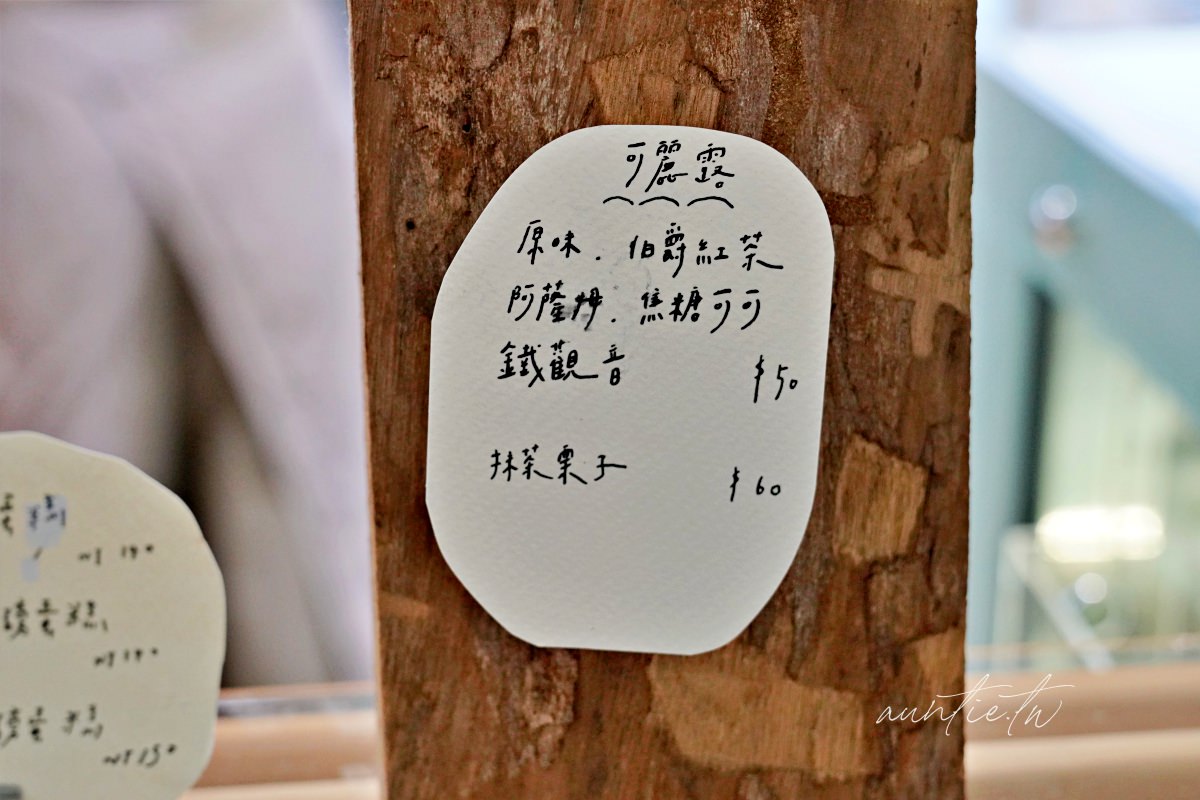 可麗露
原味．伯爵紅茶
阿薩姆．焦糖可可
鐵觀音 $50
抹茶栗子 $60
蛋糕
蛋糕
NT 150
auntie.tw